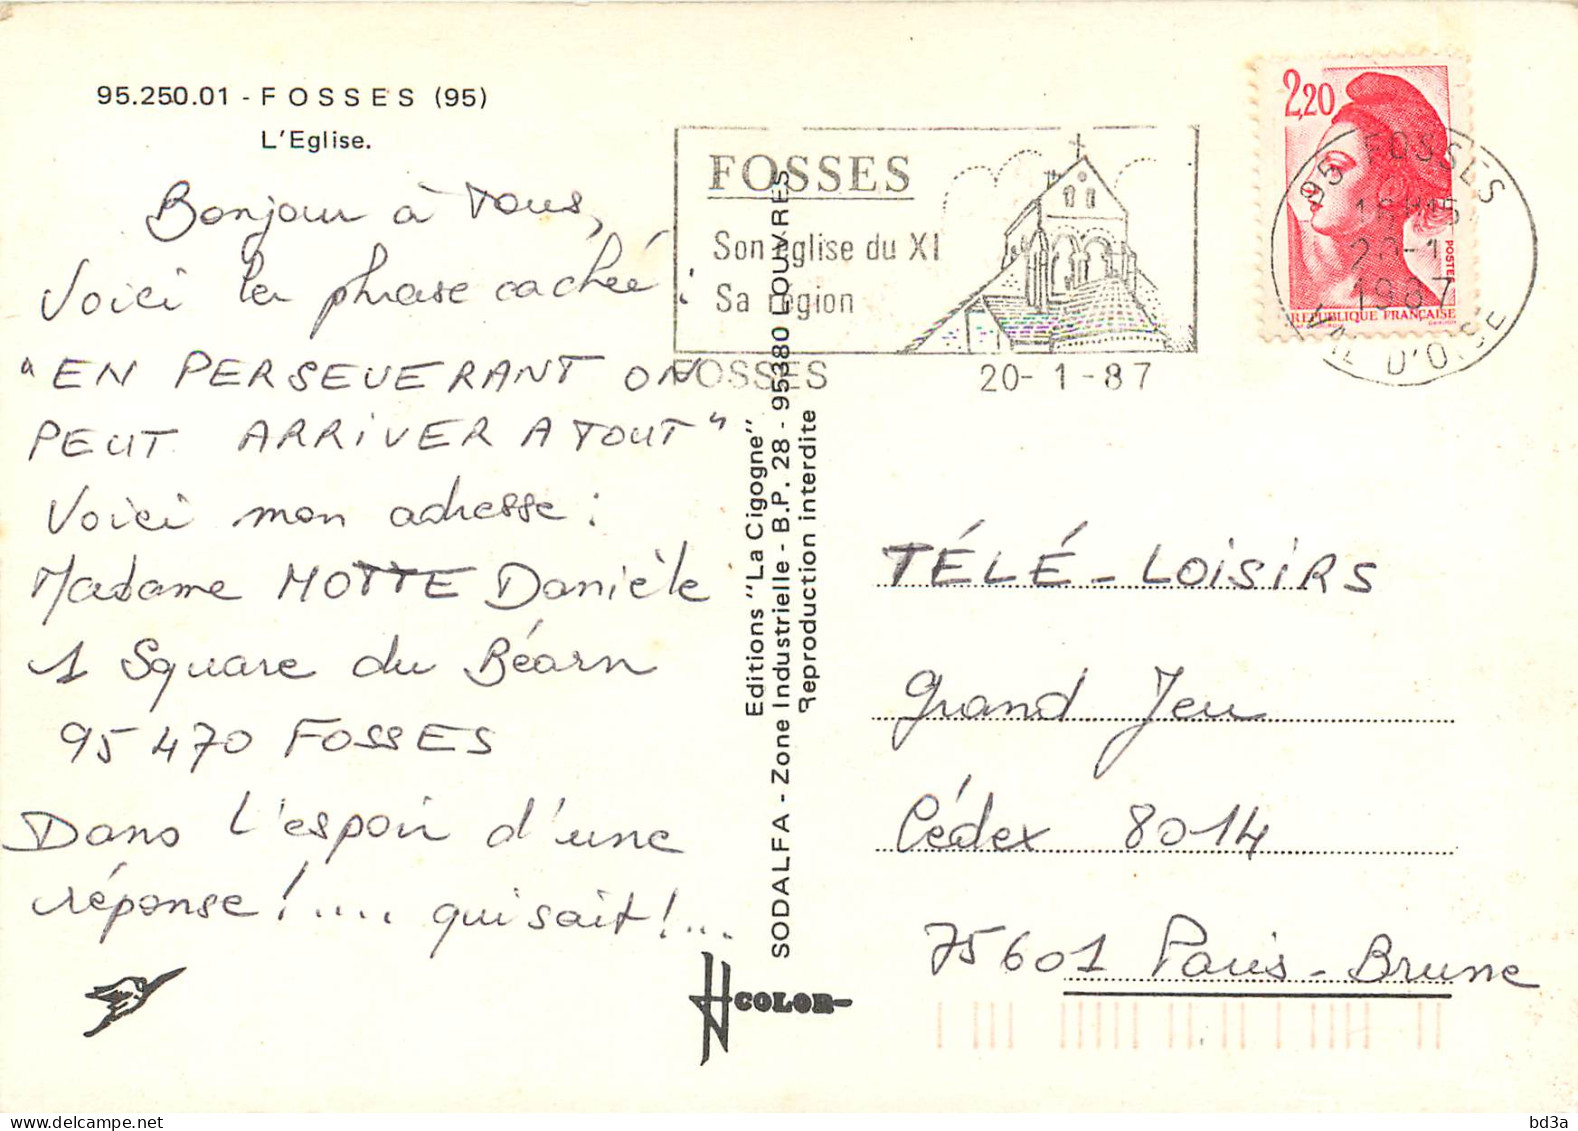 95.250.01 - FOSSES (95)
L'Eglise.
Bonjour à tous,
Voici la phrase cachée :
"EN PERSEVERANT ON
PEUT ARRIVER A TOUT"
Voici mon adresse :
Madame MOTTE Danièle
1 Square du Béarn
95470 FOSSES
Dans l'espoir d'une
réponse !.... qui sait !...
FOSSES
Son église du XI
Sa région
FOSSES 20-1-87
2,20
POSTES
REPUBLIQUE FRANÇAISE
95 FOSSES
16H15
20-1
1987
VAL D'OISE
Editions "La Cigogne"
SODALFA - Zone Industrielle - B.P. 28 - 95380 LOUVRES
Reproduction interdite
COLOR
TÉLÉ-LOISIRS
Grand Jeu
Cédex 8014
75601 Paris-Brune
delcampe.net
bd3a